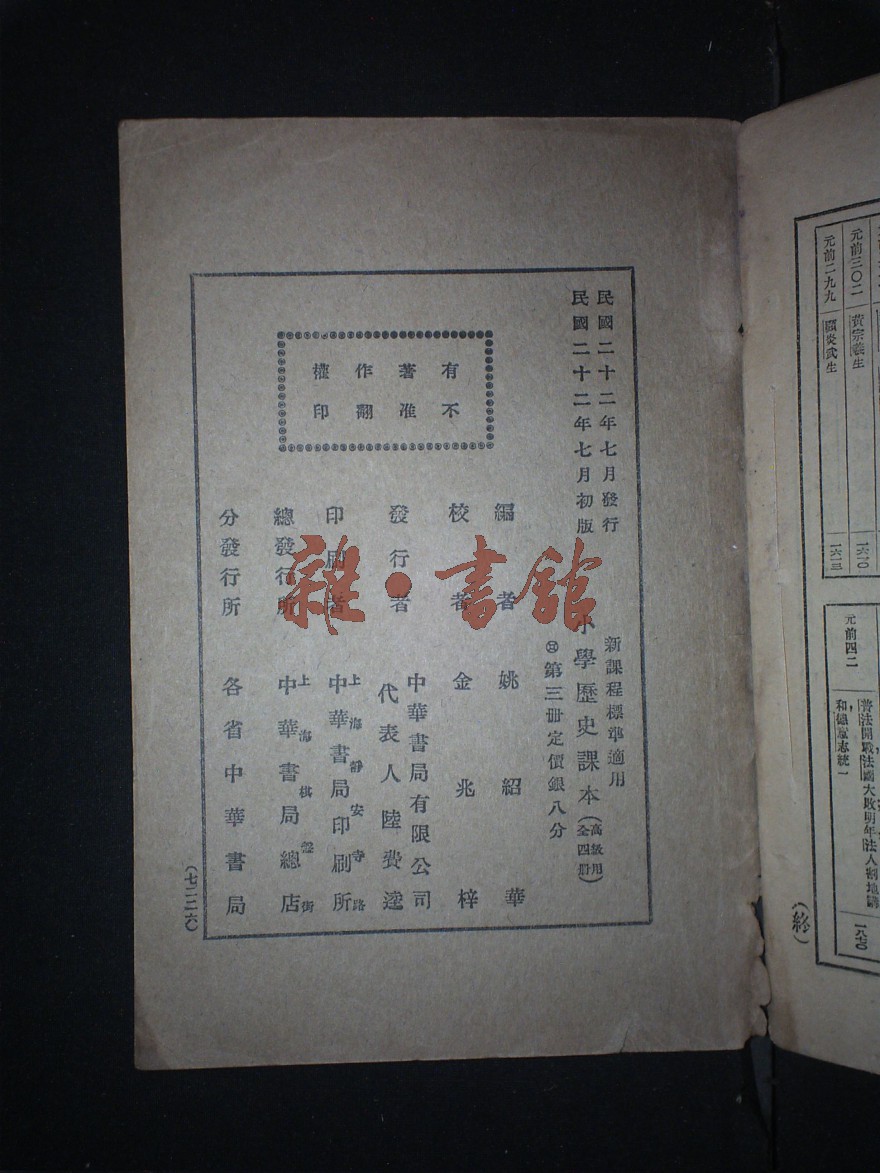 元前三〇二
黃宗羲生
一六一〇
元前二九九
顧炎武生
一六一三
元前四二
普法開戰，法國大敗，明年法人割地講
和，德意志統一
一八七〇
(終)
民國二十二年七月發行
民國二十二年七月初版
新課程標準適用
小學歷史課本(高級用全四冊)
第三冊定價銀八分
有著作權
不准翻印
編者 姚紹華
校者 金兆梓
發行者 中華書局有限公司
代表人陸費逵
印刷者 上海靜安寺路
中華書局印刷所
總發行所 上海棋盤街
中華書局總店
分發行所 各省中華書局
(七二二六)
雜·書館